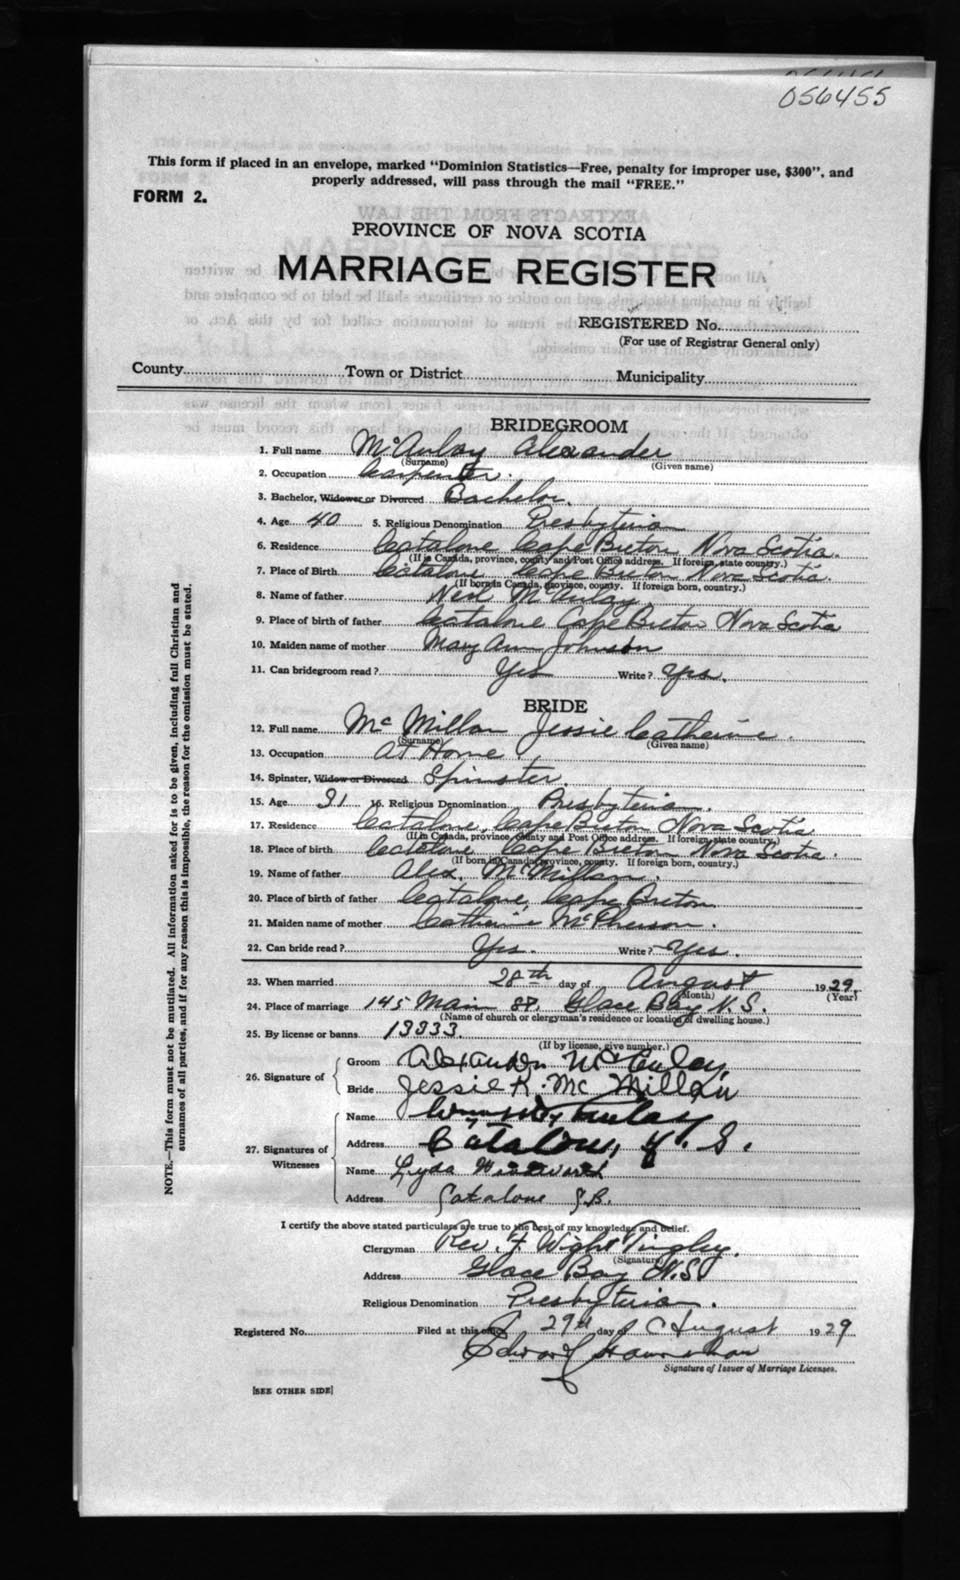 056455
This form if placed in an envelope, marked "Dominion Statistics—Free, penalty for improper use, $300", and
properly addressed, will pass through the mail "FREE."
FORM 2.
PROVINCE OF NOVA SCOTIA
MARRIAGE REGISTER
REGISTERED No.
(For use of Registrar General only)
County Town or District Municipality
BRIDEGROOM
1. Full name McAulay Alexander
(Surname) (Given name)
2. Occupation Carpenter.
3. Bachelor, Widower or Divorced Bachelor.
4. Age 40 5. Religious Denomination Presbyterian
6. Residence Catalone Cape Breton Nova Scotia.
(If in Canada, province, county and Post Office address. If foreign, state country.)
7. Place of Birth Catalone Cape Breton Nova Scotia.
(If born in Canada, province, county. If foreign born, country.)
8. Name of father Neil McAulay
9. Place of birth of father Catalone Cape Breton Nova Scotia
10. Maiden name of mother Mary Ann Johnson
11. Can bridegroom read? Yes Write? Yes.
BRIDE
12. Full name McMillan Jessie Catherine.
(Surname) (Given name)
13. Occupation At Home.
14. Spinster, Widow or Divorced Spinster.
15. Age 31 16. Religious Denomination Presbyterian.
17. Residence Catalone, Cape Breton Nova Scotia
(If in Canada, province, county and Post Office address. If foreign, state country.)
18. Place of birth Catalone Cape Breton Nova Scotia.
(If born in Canada, province, county. If foreign born, country.)
19. Name of father Alex. McMillan.
20. Place of birth of father Catalone, Cape Breton
21. Maiden name of mother Catherine McPherson.
22. Can bride read? Yes. Write? Yes.
23. When married 28th day of August 1929.
(Month) (Year)
24. Place of marriage 145 Main St. Glace Bay N.S.
(Name of church or clergyman's residence or location of dwelling house.)
25. By license or banns 13333.
(If by license, give number.)
26. Signature of
Groom Alexander McAulay.
Bride Jessie K. McMillan
27. Signatures of Witnesses
Name McAulay
Address Catalone, N. S.
Name Lyda
Address Catalone C.B.
I certify the above stated particulars are true to the best of my knowledge and belief.
Clergyman Rev. F. Wight Tingley.
(Signature)
Address Glace Bay N.S.
Religious Denomination Presbyterian.
Registered No. Filed at this office 29th day of August 1929
Edward
Signature of Issuer of Marriage Licenses.
[SEE OTHER SIDE]
NOTE.—This form must not be mutilated. All information asked for is to be given, including full Christian and
surnames of all parties, and if for any reason this is impossible, the reason for the omission must be stated.